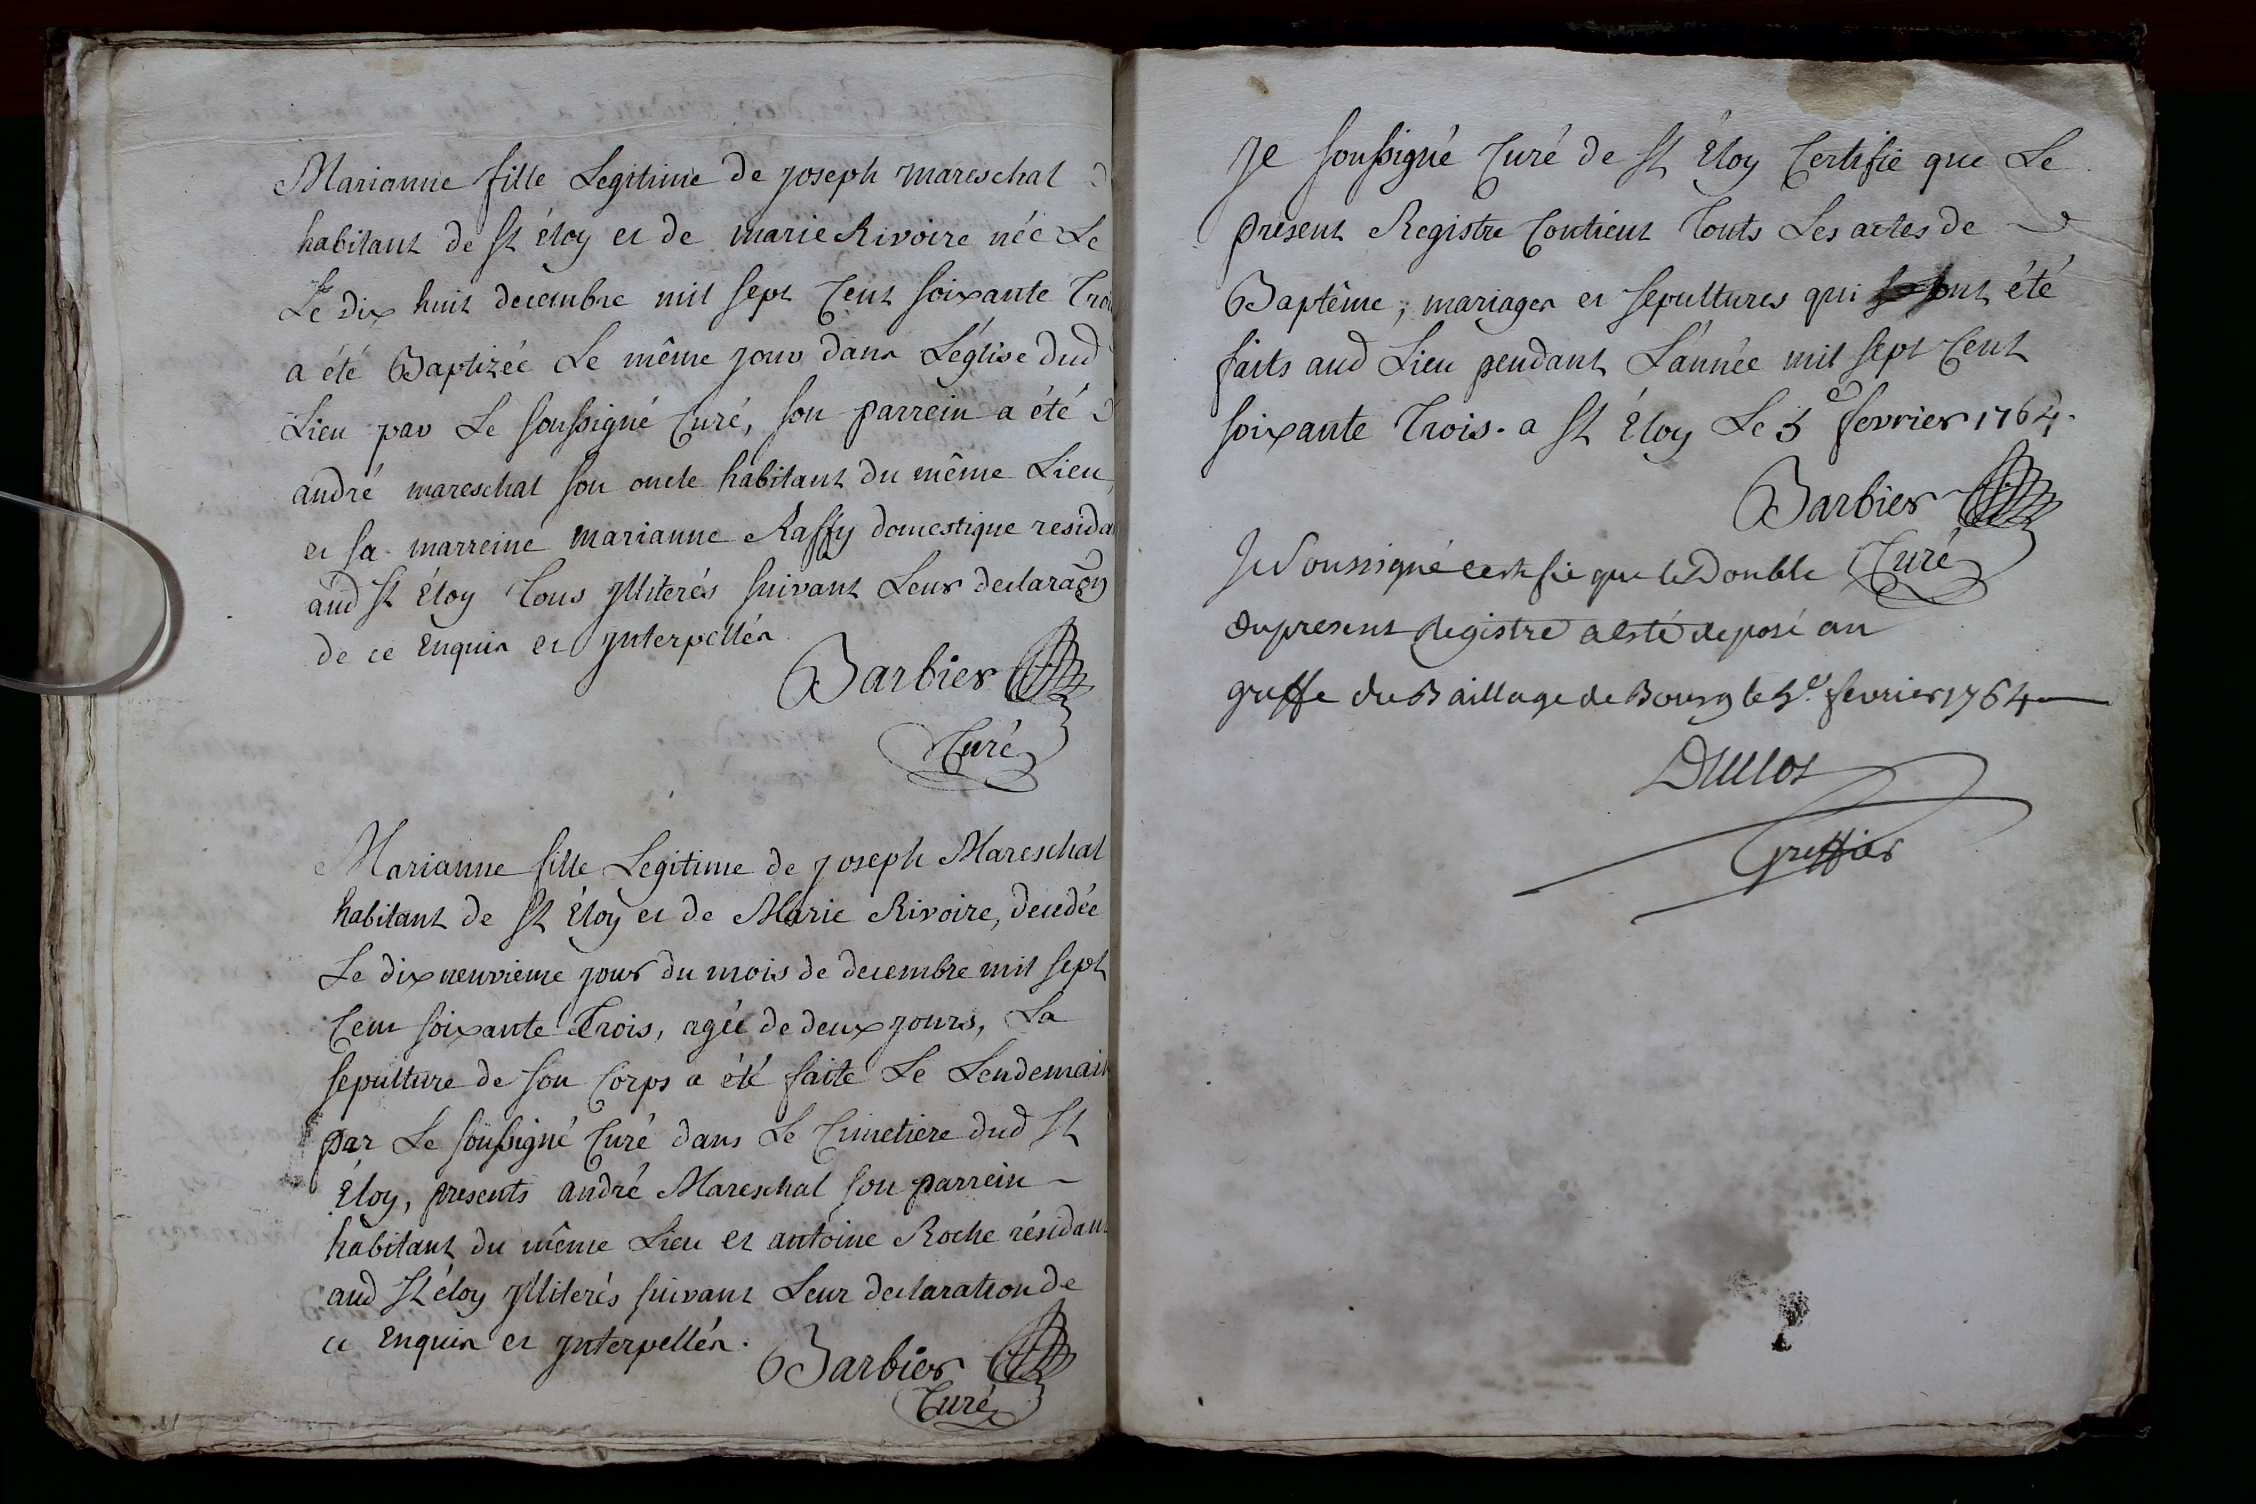 Marianne fille Legitime de joseph mareschal
habitant de St éloy et de marie Rivoire née Le
Le dix huit decembre mil sept Cent soixante Troi
a été Baptizée Le même jour dans L'église dud
Lieu par Le soussigné Curé, son parrein a été
andré mareschal son oncle habitant du même Lieu,
et sa marreine marianne Raffy domestique resida
aud St Eloy Tous jlliterés suivant Leur declaraõn
de ce Enquis et jnterpellés
Barbier
Curé
Marianne fille Legitime de joseph Mareschal
habitant de St Eloy et de Marie Rivoire, decedée
Le dix neuvieme jour du mois de decembre mil sept
Cent soixante Trois, agée de deux jours, La
sepulture de son Corps a été faite Le Lendemain
par Le soussigné Curé dans Le Cimetiere dud St
Eloy, presents andré Mareschal son parrein
habitant du même Lieu et antoine Roche résidan
aud St éloy jlliterés suivant Leur declaration de
ce Enquis et jnterpellés.
Barbier
Curé
Je soussigné Curé de St Eloy Certifie que Le
present Registre Contient Touts Les actes de
Baptême, mariages et sepultures qui ont été
faits aud Lieu pendant L'année mil sept Cent
soixante Trois. a St Eloy Le 5e fevrier 1764.
Barbier
Curé
Je Soussigné certifie que le Double
du present Registre a esté deposé au
greffe du Baillage de Bourg le 5e. fevrier 1764
Duclos
Greffier